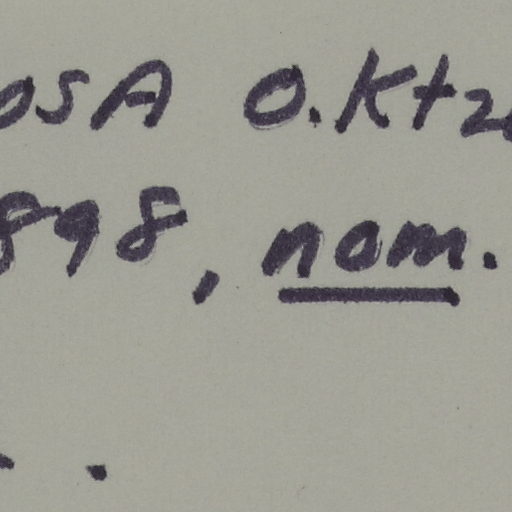 OSA O.Ktz
898, nom.
.